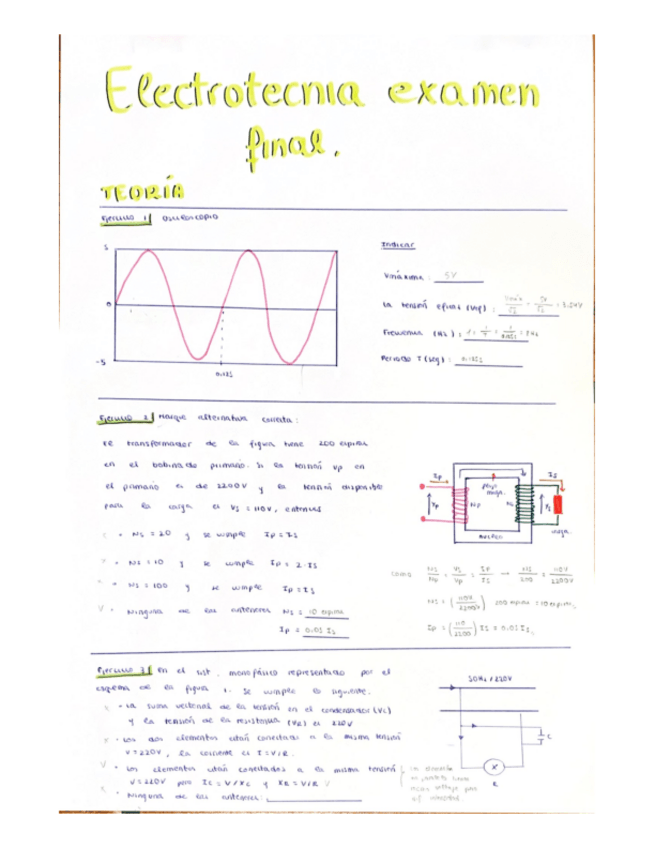 Electrotecnia examen
final.
TEORÍA
Ejercicio 1 Osciloscopio
5
0
-5
0.125
Indicar
Vmáxima: 5V
La tensión eficaz (Vef):
Frecuencia (Hz):
Periodo T (seg): 0.125
Ejercicio 2 Marque alternativa correcta:
el transformador de la figura tiene 200 espiras
en el bobinado primario. Si la tensión Vp en
el primario es de 2200V y la tensión disponible
para la carga es Vs = 110V, entonces
Ns = 20 y se cumple Ip = Is
Ns = 10 y se cumple Ip = 2·Is
Ns = 100 y se cumple Ip = Is
V Ninguna de las anteriores Ns = 10 espiras
Ip = 0.05 Is
Ip
Is
Vp
Np
Ns
Vs
flujo
magn.
núcleo
carga
como Ns/Np = Vs/Vp = Ip/Is → Ns/200 = 110V/2200V
Ns = (110V/2200V) 200 espiras = 10 espiras
Ip = (110/2200) Is = 0.05 Is
Ejercicio 3 En el sist. monofásico representado por el
esquema de la figura 1. Se cumple lo siguiente.
La suma vectorial de la tensión en el condensador (Vc)
y la tensión de la resistencia (VR) es 220V
Los dos elementos están conectados a la misma tensión
V=220V, la corriente es I=V/R.
V Los elementos están conectados a la misma tensión
V=220V pero Ic=V/Xc y
Ninguna de las anteriores:
50Hz / 220V
C
X
R